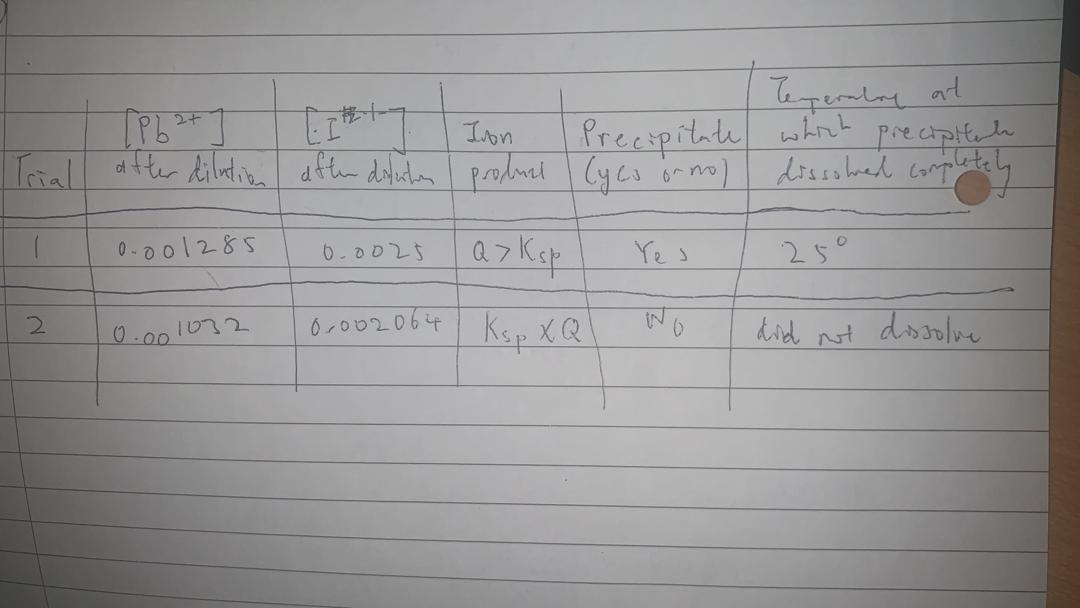 Trial [Pb2+] after dilution [I-] after dilution Iron product Precipitate (yes or no) Temperature at which precipitate dissolved completely
1 0.001285 0.0025 Q > Ksp Yes 25°
2 0.001032 0.002064 Ksp X Q No did not dissolve